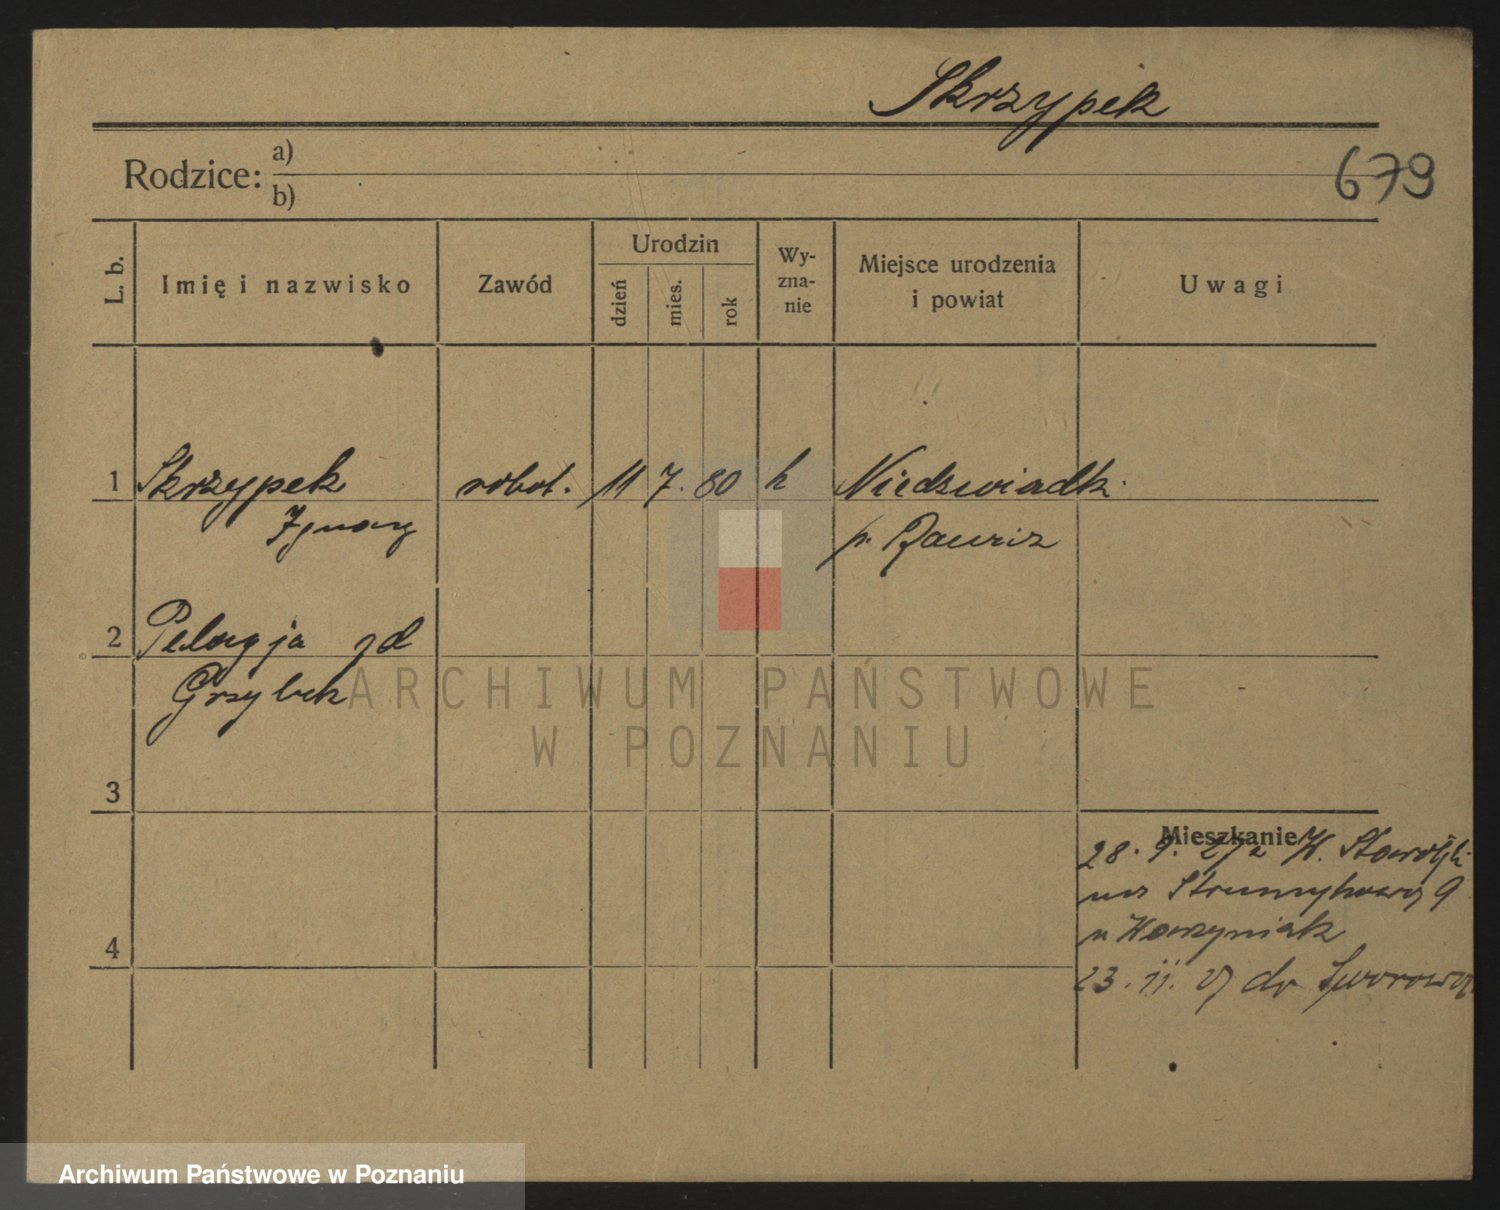 Skrzypek
Rodzice: a)
b)
679
L. b.
Imię i nazwisko
Zawód
Urodzin
dzień
mies.
rok
Wy-
zna-
nie
Miejsce urodzenia
i powiat
Uwagi
1 Skrzypek robot. 11 7. 80 k Niedzwiadk.
Ignacy p.
2 Pelagja zd
Grzybek
ARCHIWUM PAŃSTWOWE
W POZNANIU
3
Mieszkanie
28. 9. 27 z W.
Strumykowa 9
u
4
23. 11. 27 do
Archiwum Państwowe w Poznaniu